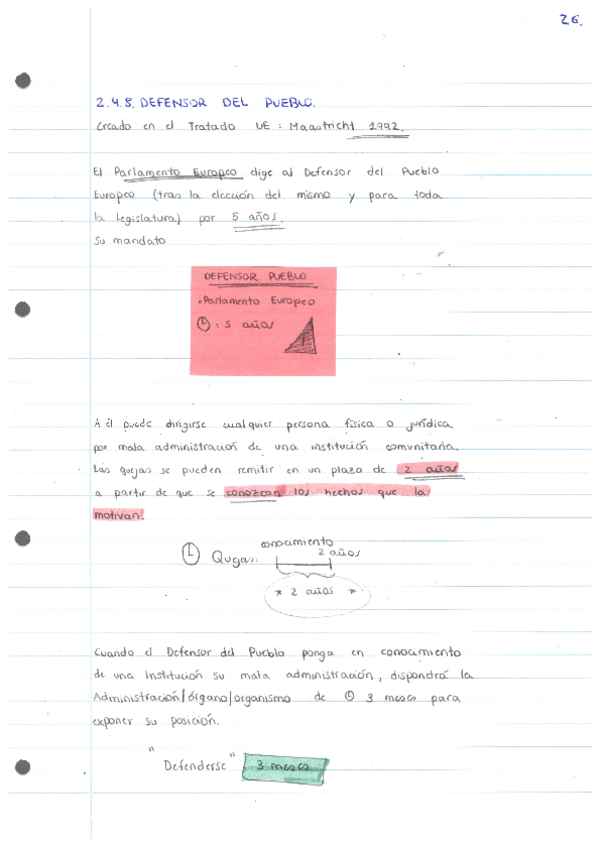 26.
2.4.8. DEFENSOR DEL PUEBLO.
Creado en el Tratado UE: Maastricht 1992.
El Parlamento Europeo elige al Defensor del Pueblo
Europeo (tras la elección del mismo y para toda
la legislatura) por 5 años.
Su mandato
DEFENSOR PUEBLO
• Parlamento Europeo
: 5 años
A él puede dirigirse cualquier persona física o jurídica
por mala administración de una institución comunitaria.
Las quejas se pueden remitir en un plazo de 2 años
a partir de que se conozcan los hechos que la
motivan.
conocimiento
2 años
Quejas:
* 2 años *
Cuando el Defensor del Pueblo ponga en conocimiento
de una Institución su mala administración, dispondrá la
Administración/órgano/organismo de 3 meses para
exponer su posición.
"Defenderse" 3 meses